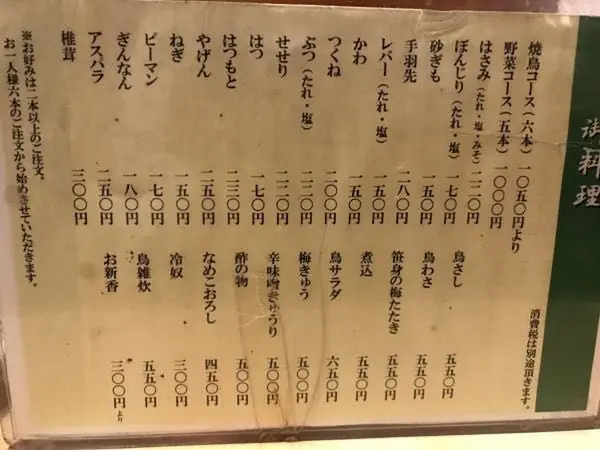 御料理
消費税は別途頂きます。
焼鳥コース(六本) 一〇五〇円より
野菜コース(五本) 一〇〇〇円
はさみ(たれ・塩・みそ) 二二〇円
ぼんじり(たれ・塩) 一七〇円
砂ぎも 一五〇円
手羽先 二八〇円
レバー(たれ・塩) 一五〇円
かわ 一五〇円
つくね 二〇〇円
ぶつ(たれ・塩) 二二〇円
せせり 二二〇円
はつ 一七〇円
はつもと 二三〇円
やげん 二五〇円
ねぎ 一五〇円
ピーマン 一七〇円
ぎんなん 一八〇円
アスパラ 二五〇円
椎茸 三〇〇円
鳥さし 五五〇円
鳥わさ 五五〇円
笹身の梅たたき 五五〇円
煮込 五五〇円
鳥サラダ 六五〇円
梅きゅう 五〇〇円
辛味噌きゅうり 五〇〇円
酢の物 五〇〇円
なめこおろし 四五〇円
冷奴 三〇〇円
鳥雑炊 五五〇円
お新香 三〇〇円より
※お好みは二本以上のご注文。
お一人様六本のご注文から始めさせていただきます。